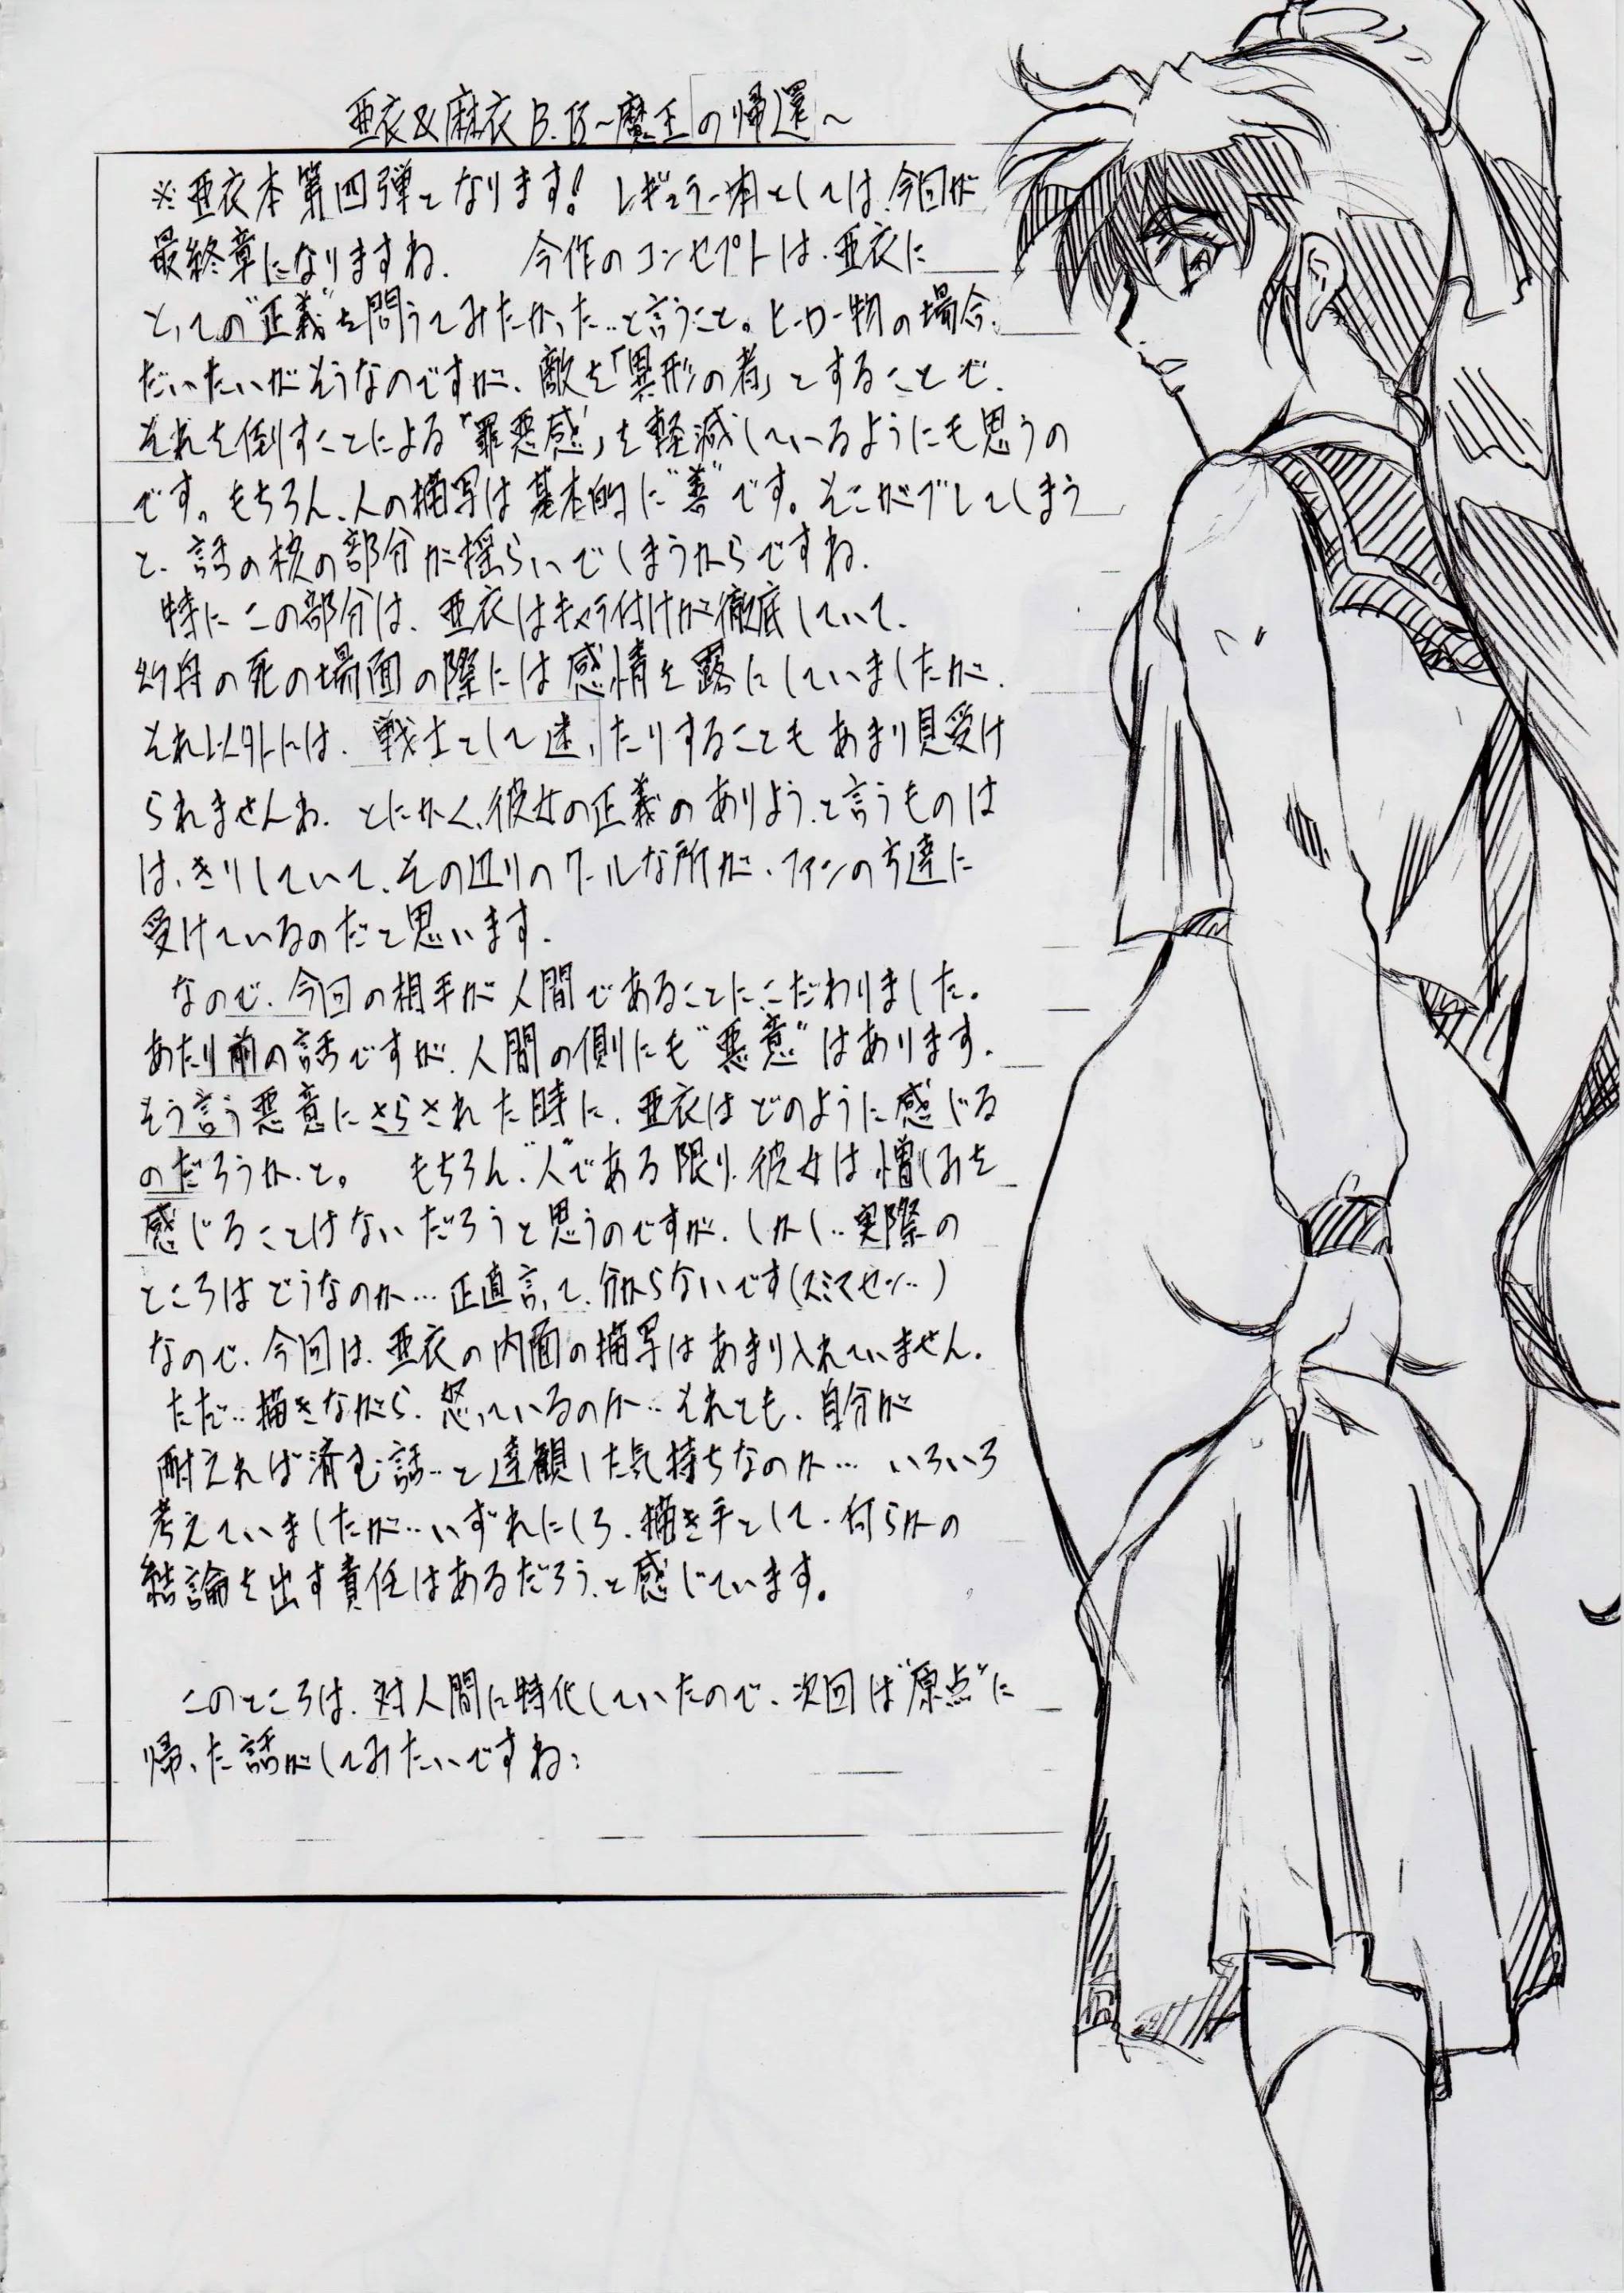 亜衣&麻衣 B.B～魔王の帰還～
※亜衣本第四弾となります! レギュラー本としては、今回が
最終章になりますね. 今作のコンセプトは、亜衣に
とっての"正義"を問うてみたかった‥と言うこと。ヒーロー物の場合、
だいたいがそうなのですが、敵を「異形の者」とすることで、
それを倒すことによる「罪悪感」を軽減しているようにも思うの
です。もちろん、人の描写は基本的に"善"です。そこがブレてしまう
と、話の核の部分が揺らいでしまうからですね.
特にこの部分は、亜衣はキャラ付けが徹底していて、
幻舟の死の場面の際には感情を露にしていましたが、
それ以外には、戦士として迷ったりすることもあまり見受け
られませんね. とにかく、彼女の正義のありよう、と言うものは
はっきりしていて、その辺りのクールな所が、ファンの方達に
受けているのだと思います.
なので、今回の相手が人間であることにこだわりました。
あたり前の話ですが、人間の側にも"悪意"はあります.
そう言う悪意にさらされた時に、亜衣はどのように感じる
のだろうか、と。 もちろん、"人"である限り、彼女は憎しみを
感じることはないだろうと思うのですが、しかし‥実際の
ところはどうなのか…正直言って、分からないです(スミマセン‥)
なので、今回は、亜衣の内面の描写はあまり入れていません.
ただ‥描きながら、怒っているのか‥それとも、自分が
耐えれば済む話‥と達観した気持ちなのか… いろいろ
考えていましたが‥いずれにしろ、描き手として、何らかの
結論を出す責任はあるだろう、と感じています。
このところは、対人間に特化していたので、次回は"原点"に
帰った話がしてみたいですね: